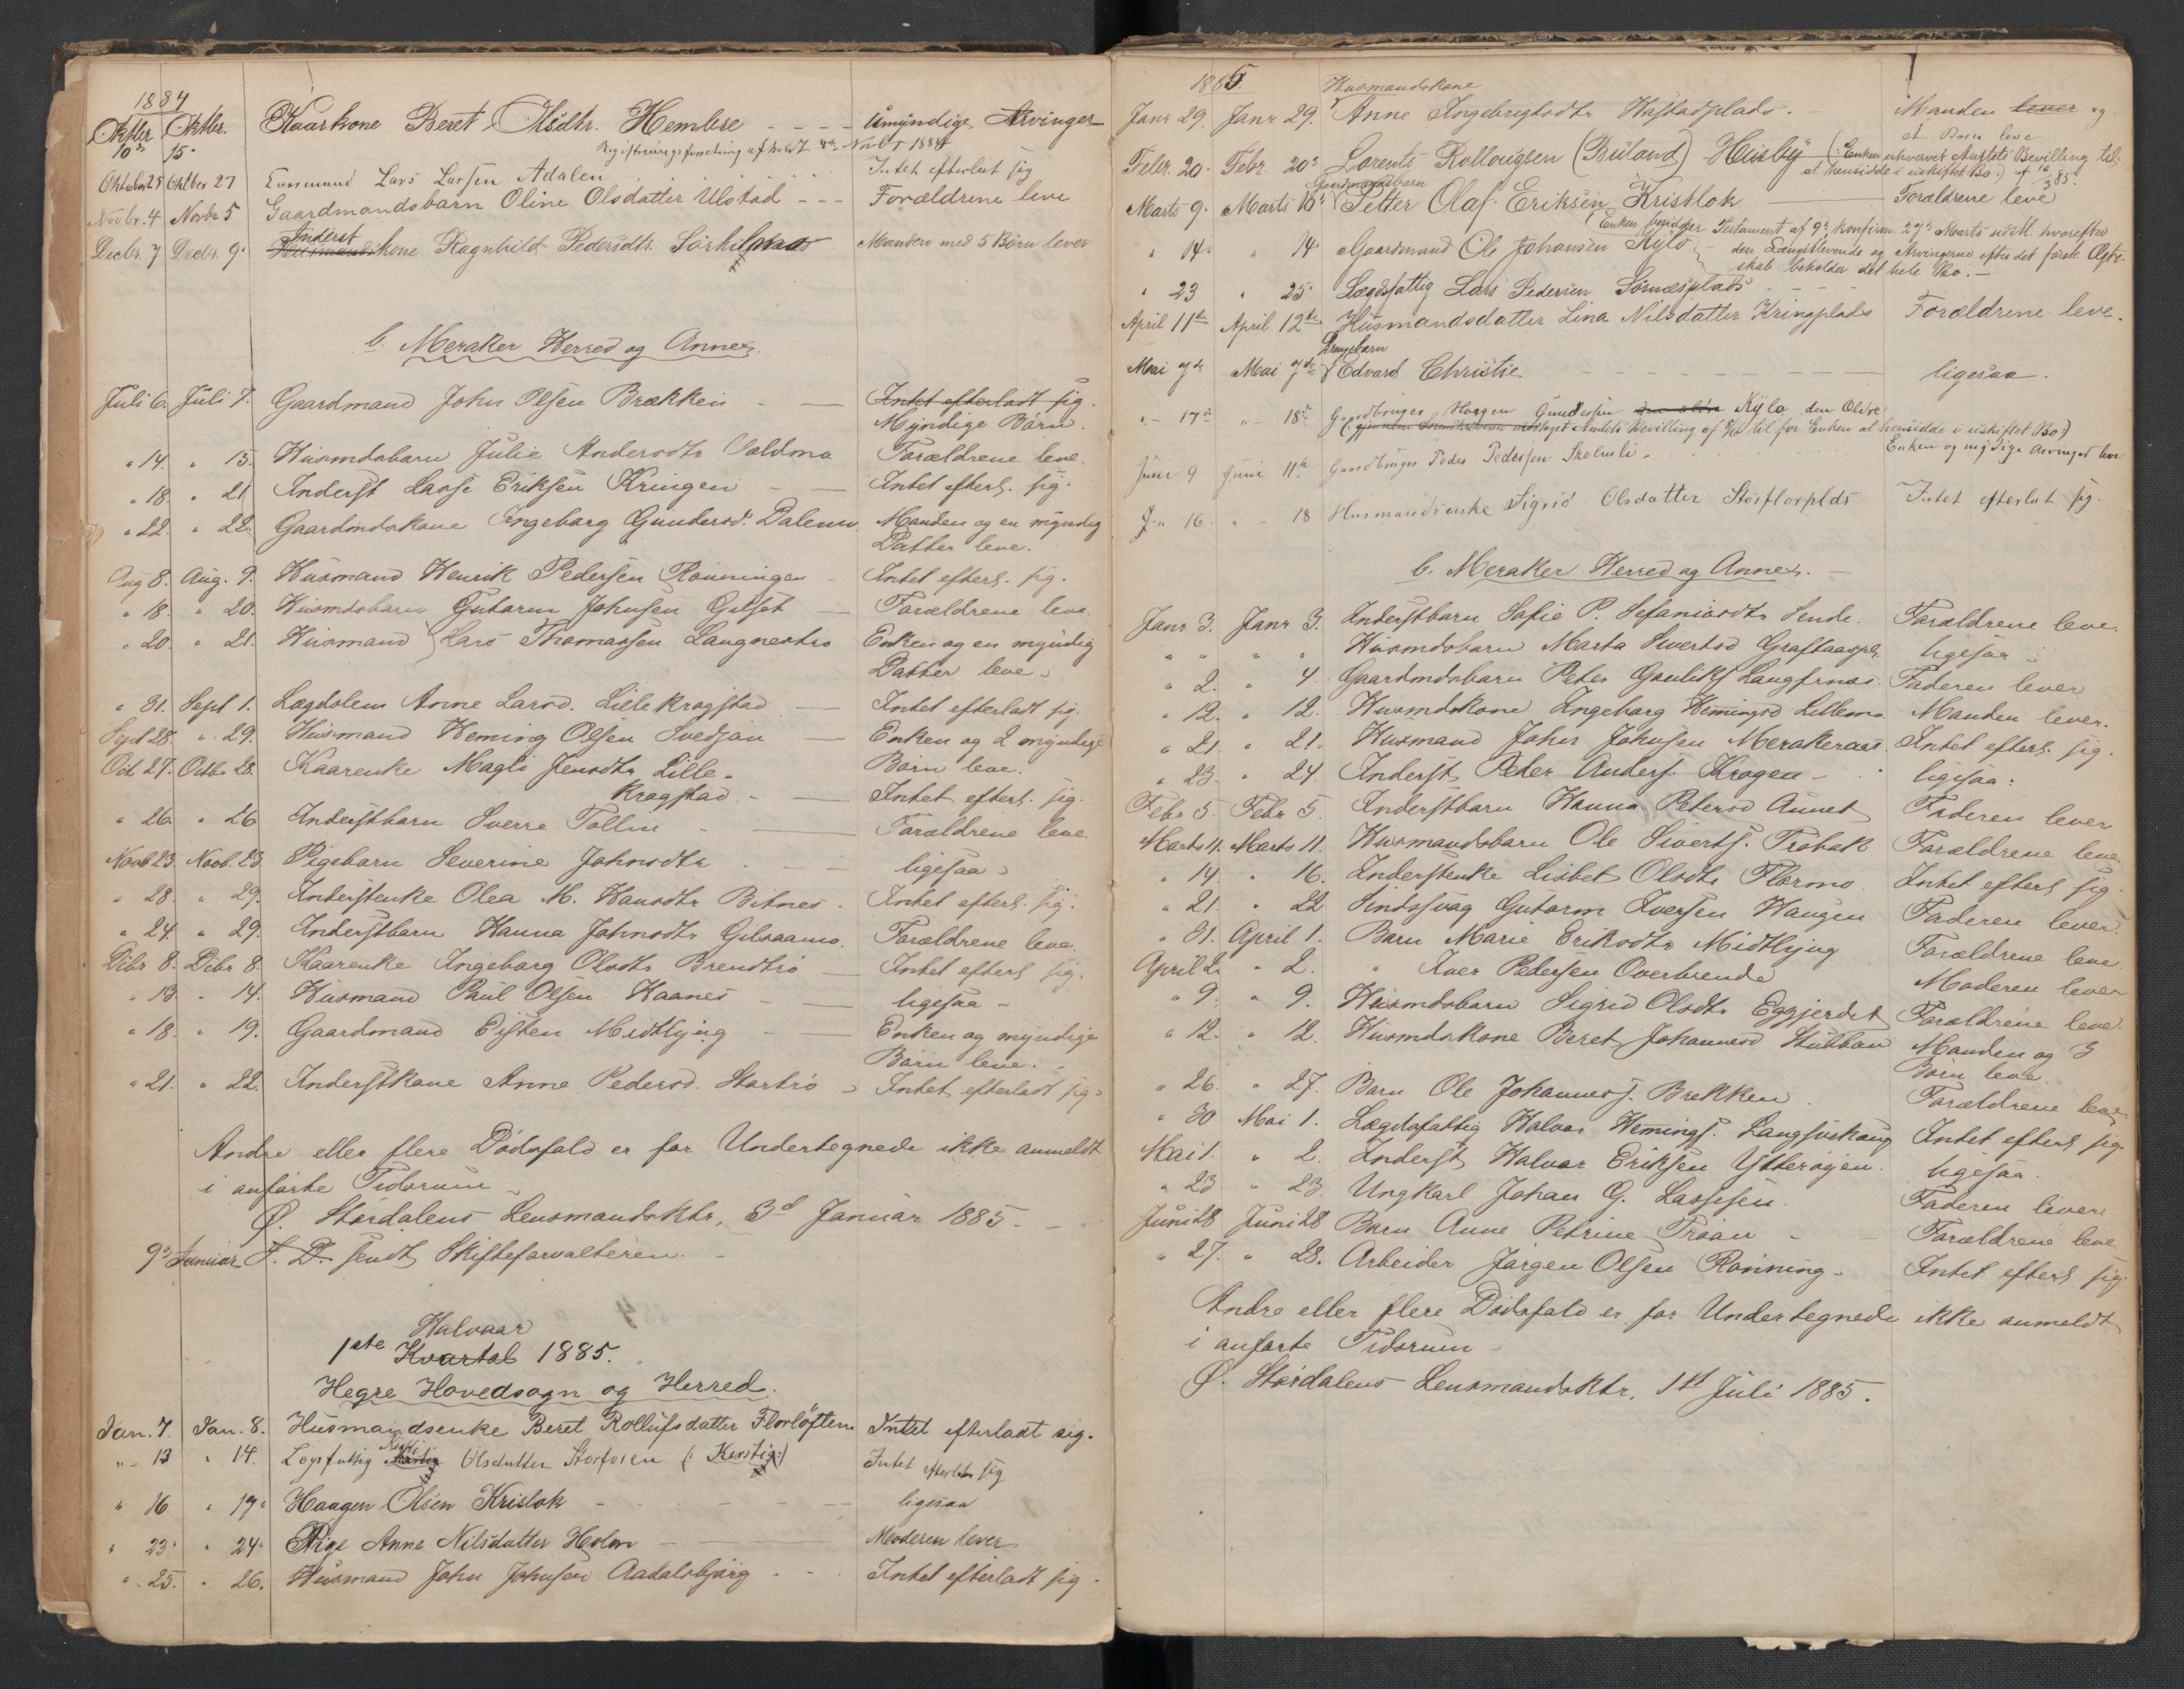 1884
Oktbr. 10de Oktbr. 15. Kaarkone Beret Olsdtr. Hembre - - - - Umyndige Arvinger
Registreringsforretning afholdt 4de Novbr 1884
Oktober 25 Oktbr 27 Lars Larsen Adalen Intet efterlat sig
Novbr. 4 Novbr 5 Gaardmandsbarn Oline Olsdatter Ulstad - - - Forældrene leve
Inderst
Decbr. 7 Decbr. 9. Husmandskone Ragnhild Pedersdtr. Manden med 5 Børn lever
b. Meraker Herred og Annex.
Juli 6. Juli 7. Gaardmand John Olsen Brækken - — Intet efterladt sig.
Myndige Børn.
" 14. " 15. Husmdsbarn Julie Andersdtr Valdmo Forældrene leve.
" 18. " 21 Inderst Lasse Eriksen Kringen - — Intet efterl. sig.
" 22. " 22. Gaardmdskone Ingeborg Gundersd. Dalemo Manden og en myndig
Datter leve.
Aug 8. Aug. 9. Husmand Henrik Pedersen Rønningen Intet efterl. sig.
" 18. " 20. Husmdsbarn Gutorm Johnsen Gilset — Forældrene leve.
" 20. " 21. Husmand Lars Thomassen Langnestrø Enken og en myndig
Datter leve.
" 31. Sept 1. Lægdslem Anne Larsd. Lillekragstad — Intet efterladt sig.
Sept 28. " 29. Husmand Heming Olsen Svedjan — Enken og 2 myndige
Oct 27. Octb. 28. Kaarenke Magli Jensdtr Lille- Børn leve.
kragstad - — Intet efterl. sig.
" 26. " 26 Inderstbarn Sverre Tollin - — Forældrene leve.
Novb 23. Novb. 23. Pigebarn Severine Johnsdtr - — ligesaa
" 28. " 29. Inderstenke Olea M. Hansdtr Bitnes - Intet efterl. sig.
" 24. " 29. Inderstbarn Hanna Johnsdtr Gilsaamo. Forældrene leve.
Dcbr 8. Dcbr 8. Kaarenke Ingeborg Olsdtr Brendtrø — Intet efterl sig.
" 13. " 14. Husmand Paul Olsen Kaanes - — ligesaa -
" 18. " 19. Gaardmand Eisten Midtbjug - — Enken og myndige
Børn leve. -
" 21. " 22. Inderstkone Anne Pedersd. Startrø - Intet efterladt sig.
Andre eller flere Dødsfald er for Undertegnede ikke anmeldt
i anførte Tidsrum.
Ø. Størdalens Lensmandsktr, 3d Januar 1885. -
9de Januar F. D. sendt Skifteforvalteren. -
Halvaar
1ste Kvartal 1885.
Hegre Hovedsogn og Herred.
Jan. 7. Jan. 8. Husmandsenke Beret Rollufsdatter Florløften Intet efterladt sig.
"- 13 " 14. Legsfattig Olsdatter Storforen (: Kerstig:) Intet efterlat sig
" 16 " 17. Haagen Olsen Krislok - - - — ligesaa
" 23. " 24. Pige Anne Nilsdatter Holm - — Moderen lever
" 25. " 26. Husmand John Johnsen Aadalsbjørg - - - Intet efterladt sig.
1885. Husmandskone
Janr 29. Janr 29. Anne Ingebrigtsdtr Hustadplads. - Manden lever og
et Barn leve
Febr. 20 Febr. 20de Lorents Rollougsen (Buland) Husby (: Enken erhvervet Amtets Bevilling til
at hensidde i uskiftet Bo:) af 16/3 85.
Gaardmandsbarn
Marts 9. Marts 10de Petter Olaf Eriksen Kristlok — Forældrene leve
(Enken besidder Testament af 9de, konfirm. 27de Marts udst. hvorefter
" 14. " 14 Gaardmand Ole Johansen Kylo den Længstlevende og Arvingerne efter det første Ægte-
skab beholder det hele Bo. -
" 23 " 25. Lægdsfattig Lars Pedersen Sørnæsplads - - -
April 11te April 12te Husmandsdatter Lina Nilsdatter Kringplads Forældrene leve.
Drengebarn
Mai 7de Mai 7de Edvard Christie - - - — ligesaa.
"- 17de "- 18de Gaardbruger Haagen Gundersen den eldre Kylo den Eldre
Amtets Bevilling af til for Enken at hensidde i uskiftet Bo:)
Juni 9 Juni 11te Gaardbruger Peder Pedersen Skelmli. - Enken og myndige Arvinger leve
J." 16. "- 18 Husmandsenke Sigrid Olsdatter Storflorplds Intet efterlat sig.
b. Meraker Herred og Annex. -
Janr 3. Janr 3. Inderstbarn Sofie P. Sefaniasdtr Sende. Forældrene leve.
" " " " Husmdsbarn Marta Sivertsd Graftaaspl. ligesaa -
" 2. " 4. Gaardmdsbarn Peter Gauliks Langfrnæs. Faderen lever
" 12. " 12. Husmdskone Ingeborg Hemingsd Lillemo Manden lever.
" 21. " 21. Husmand John Johnsen Merakeraas. Intet efterl. sig.
" 23. " 24. Inderst Peder Anders. Krogen - ligesaa:
Febr 5. Febr 5. Inderstbarn Hanna Petersd Aunet Faderen lever
Marts 11. Marts 11. Husmandsbarn Ole Siverts. Trøbak Forældrene leve
" 14. " 16. Inderstenke Lisbet Olsdtr Flormo. Intet efterl sig.
" 21. " 22 Sindssvag Gutorm Iversen Haugen Faderen lever.
" 31. April 1. Barn Marie Eriksdtr Midtbjug Forældrene leve
April 2. " 2. " Iver Pedersen Overbrende Moderen lever
" 9. " 9. Husmdsbarn Sigrid Olsdtr Eggjerdet Forældrene leve.
" 12. " 12. Husmdskone Beret Johannesd Stubban Manden og 3
Børn leve.
" 26. " 27. Barn Ole Johanness. Brekken. Forældrene leve,
" 30 Mai 1. Lægdsfattig Halvor Hemings. Langsvskaug Intet efterl sig.
Mai 1. " 2. Inderst Halvor Eriksen Ytterøyen. ligesaa.
" 23 " 23. Ungkarl Johan G. Lassesen. Faderen lever.
Juni 28 Juni 28 Barn Anne Petrine Trøan - Forældrene leve
" 27. " 28. Arbeider Jørgen Olsen Rønning - Intet efterl sig.
Andre eller flere Dødsfald er for Undertegnede ikke anmeldt
i anførte Tidsrum -
Ø. Størdalens Lensmandsktr. 1st Juli 1885.